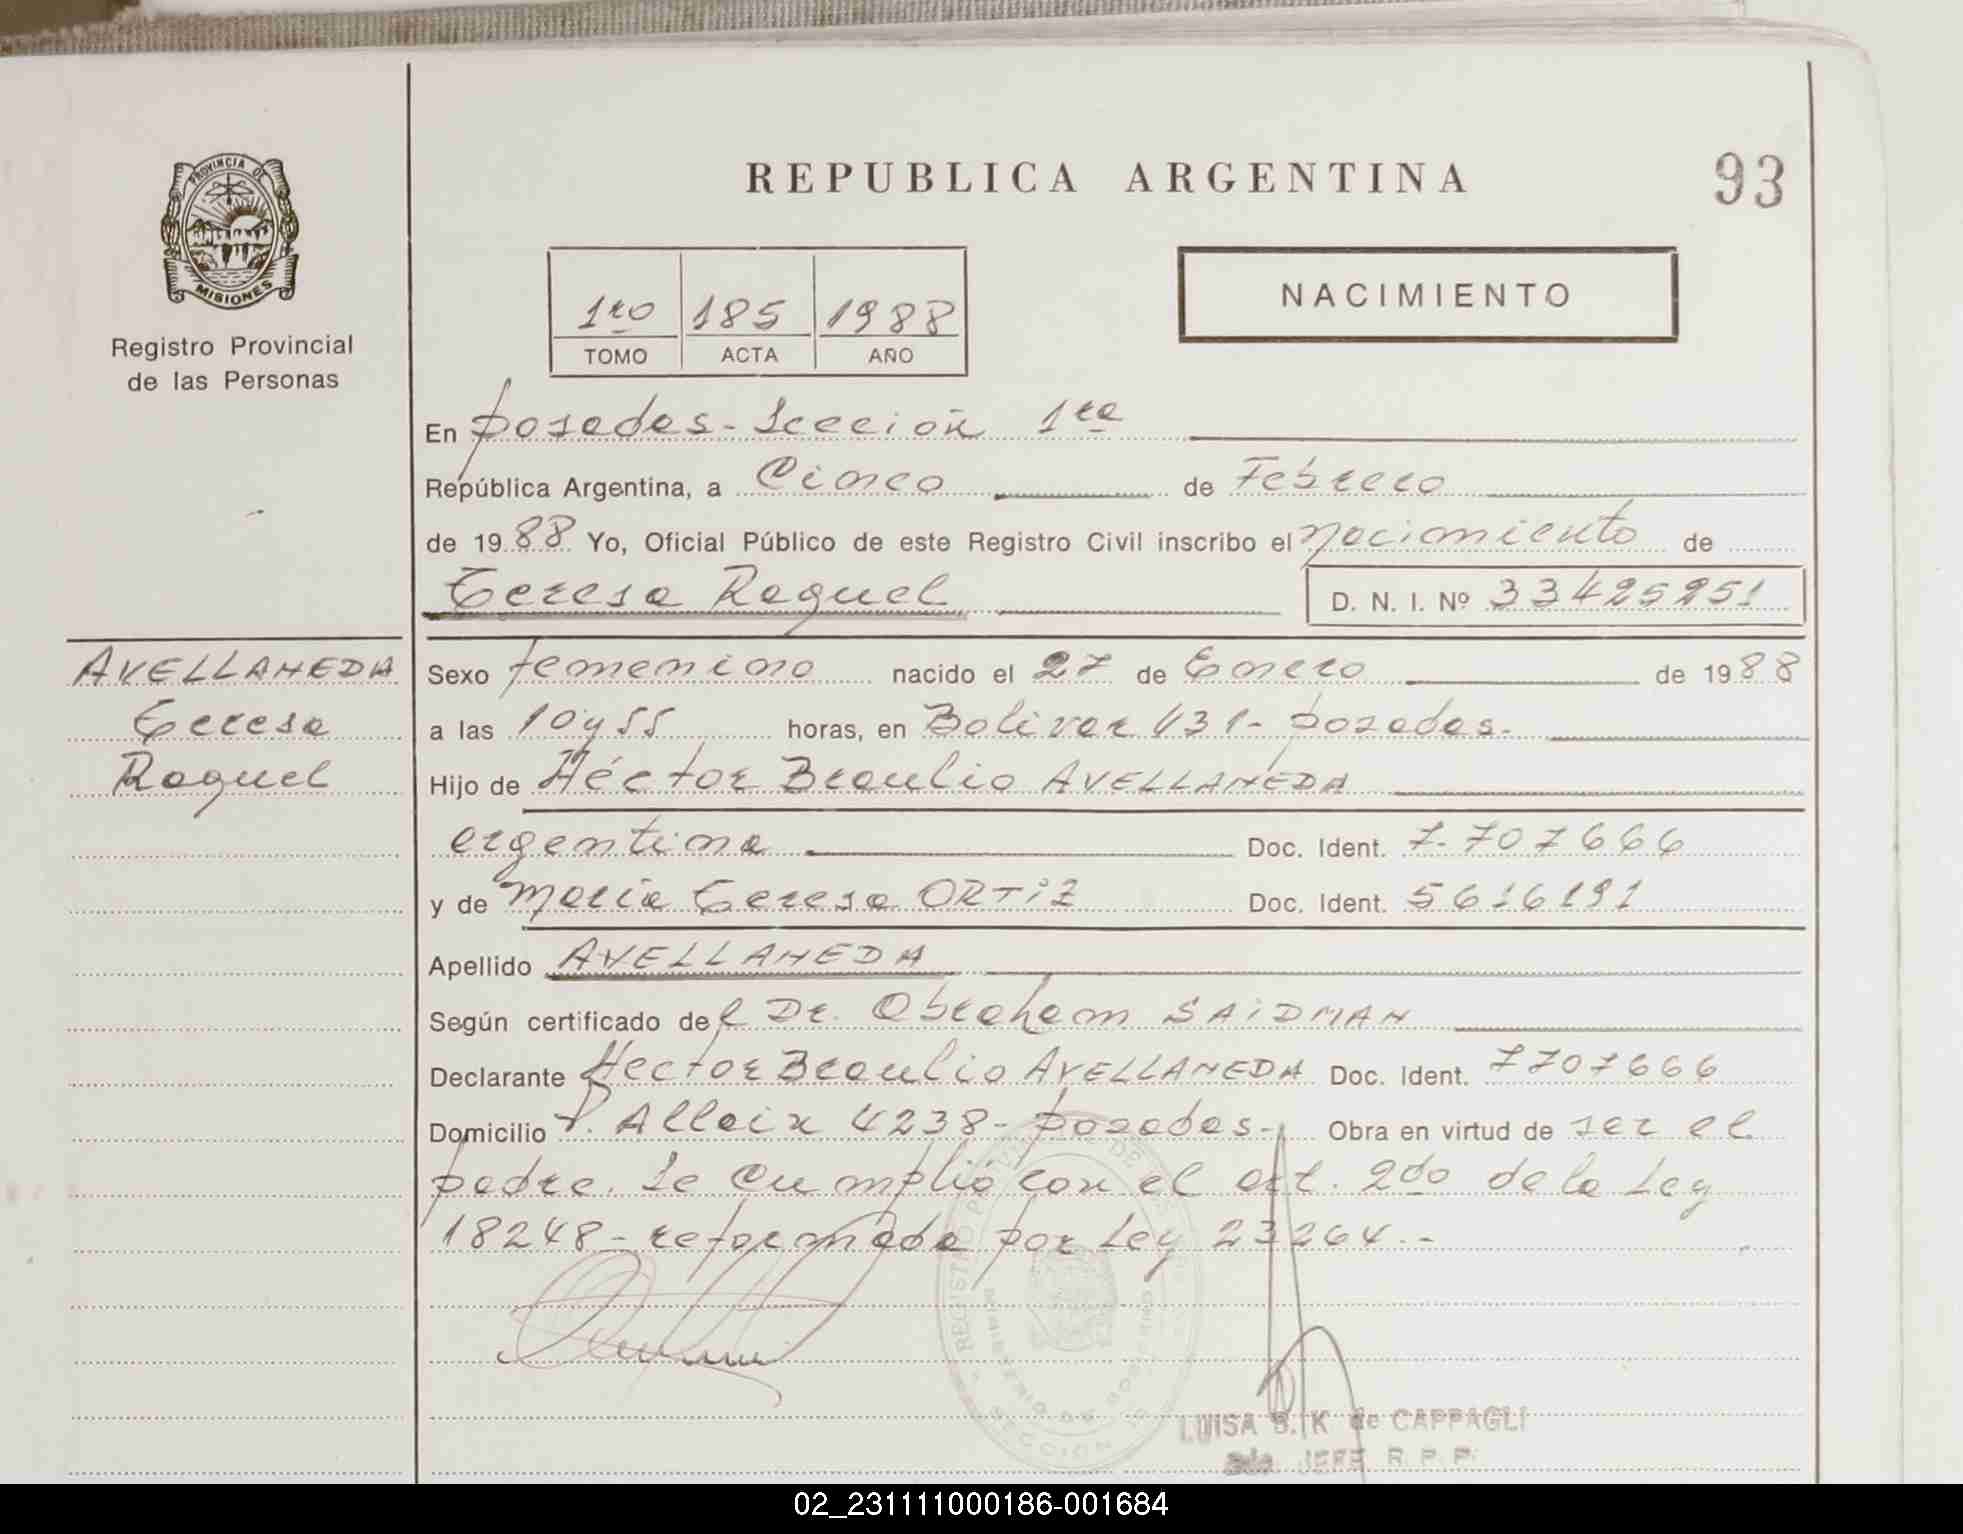 PROVINCIA DE
MISIONES
Registro Provincial
de las Personas
REPUBLICA ARGENTINA
93
1ro 185 1988
TOMO ACTA AÑO
NACIMIENTO
En Posadas - Sección 1ra
República Argentina, a Cinco de Febrero
de 1988 Yo, Oficial Público de este Registro Civil inscribo el nacimiento de
Teresa Raquel D. N. I. Nº 33425251
AVELLANEDA
Teresa
Raquel
Sexo femenino nacido el 27 de Enero de 1988
a las 10 y 55 horas, en Bolivar 431 - Posadas.
Hijo de Héctor Braulio AVELLANEDA
argentina Doc. Ident. 7.707666
y de María Teresa ORTiZ Doc. Ident. 5616191
Apellido AVELLANEDA
Según certificado del Dr. Abraham SAiDMAN
Declarante Hector Braulio AVELLANEDA Doc. Ident. 7707666
Domicilio P. Allaix 4238 - Posadas - Obra en virtud de ser el
padre. Se cumplió con el art. 2do de la Ley
18248 - reformada por Ley 23264. -
LUISA B. K de CAPPAGLI
JEFE R. P. P.
02_231111000186-001684